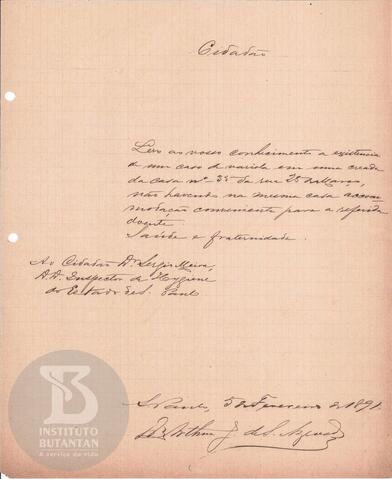 Cidadão
Levo ao vosso conhecimento a existencia
de um caso de variola em uma creada
da casa nº 35 da rua 25 de Março,
não havendo na mesma casa accom
modação conveniente para a referida
doente.
Saude e fraternidade.
Ao Cidadão Dr. Sergio Meira,
DD. Inspector de Hygiene
do Estado de S. Paulo
S. Paulo, 5 de Fevereiro de 1891.
Dr. Arthur de S. Azevedo
INSTITUTO
BUTANTAN
A serviço da vida